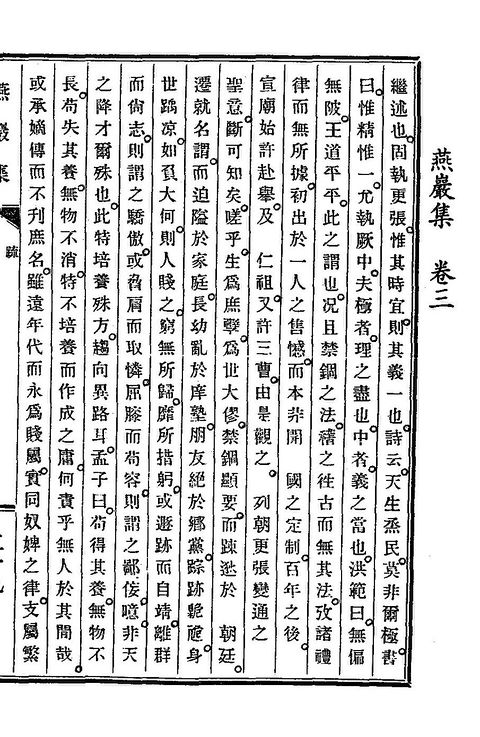 燕巖集　卷三
繼述也。固執更張。惟其時宜。則其義一也。詩云。天生烝民。莫非爾極。書
曰。惟精惟一。允執厥中。夫極者。理之盡也。中者。義之當也。洪範曰。無偏
無陂。王道平平。此之謂也。况且禁錮之法。稽之徃古而無其法。攷諸禮
律而無所據。初出於一人之售憾。而本非開　國之定制。百年之後。
宣廟始許赴擧。及　仁祖又許三曹。由是觀之。　列朝更張變通之
聖意。斷可知矣。嗟乎。生爲庶孼。爲世大僇。禁錮顯要。而踈逖於　朝廷。
遷就名謂。而迫隘於家庭。長幼亂於庠塾。朋友絶於鄕黨。踪跡臲卼。身
世踽凉。如負大何。則人賤之。窮無所歸。靡所措躬。或遯跡而自靖。離群
而尙志。則謂之驕傲。或脅肩而取憐。屈膝而苟容。則謂之鄙佞。噫。非天
之降才爾殊也。此特培養殊方。趨向異路耳。孟子曰。苟得其養。無物不
長。苟失其養。無物不消。特不培養而作成之。庸何責乎無人於其間哉。
或承嫡傳而不刋庶名。雖遠年代而永爲賤屬。實同奴婢之律。支屬繁
燕巖集
疏